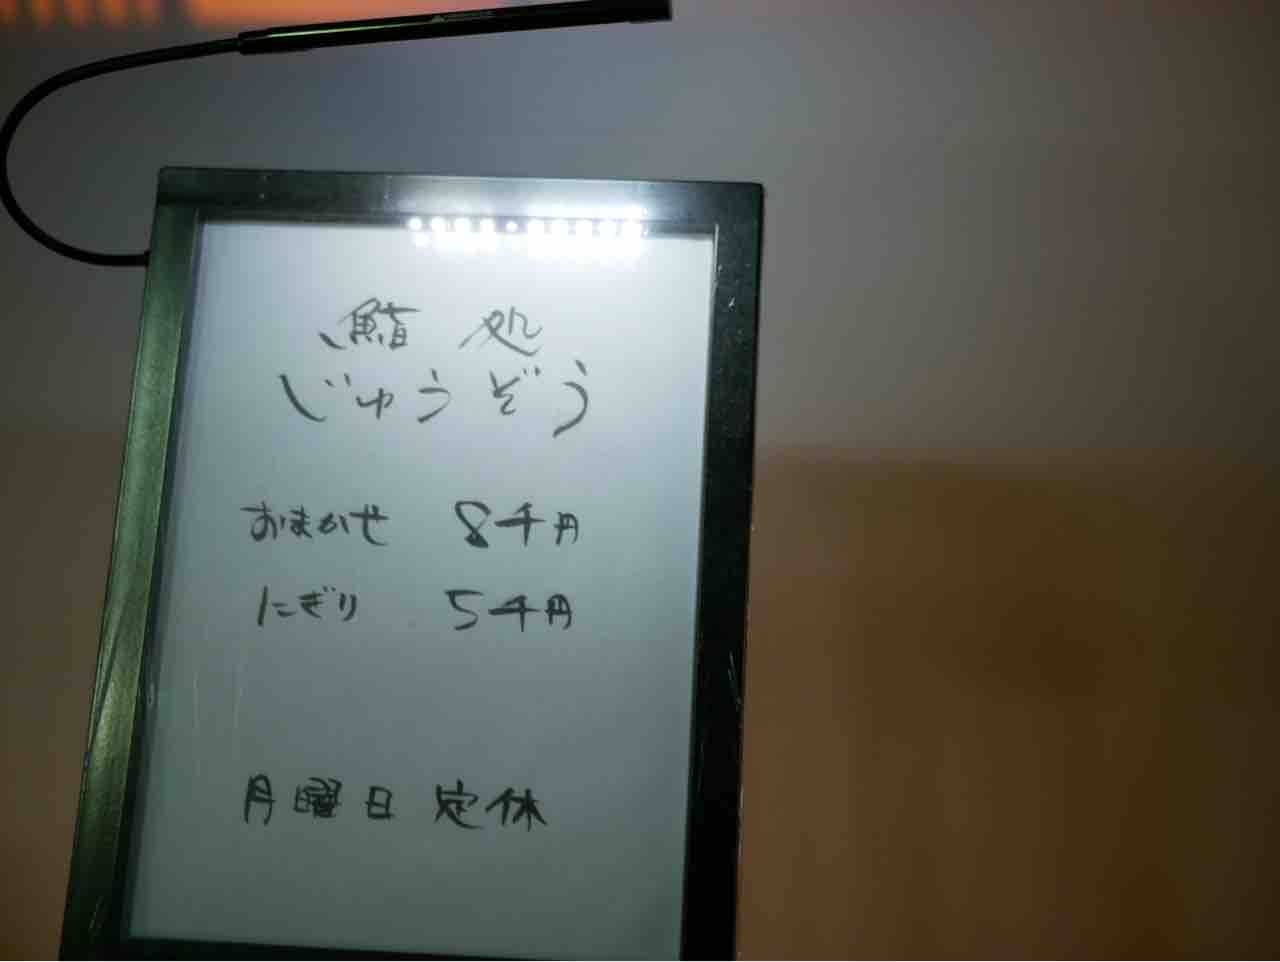 鮨 処
じゅうぞう
おまかせ 8千円
にぎり 5千円
月曜日定休